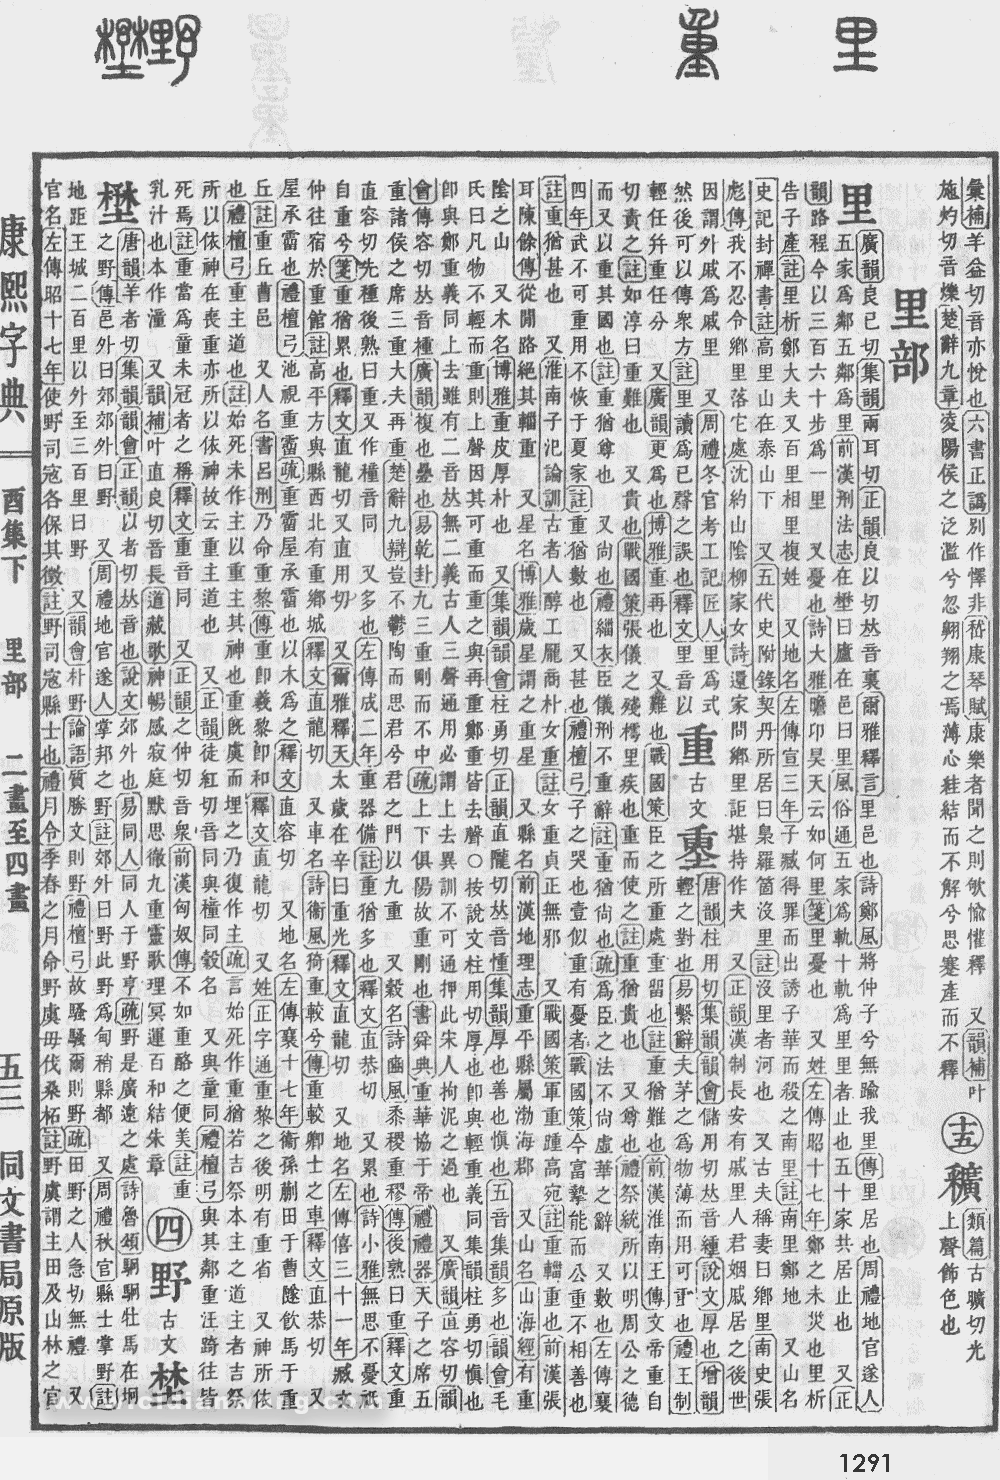 里
重
野
壄
彙補羊益切音亦悅也六書正譌別作懌非嵆康琴賦康樂者聞之則欨愉懽釋 又韻補叶
施灼切音爍楚辭九章凌陽侯之泛濫兮忽翺翔之焉薄心絓結而不解兮思蹇產而不釋
十五 類篇古曠切光上聲飾色也
里部
里 廣韻良已切集韻兩耳切正韻良以切𠀤音裏爾雅釋言里邑也詩鄭風將仲子兮無踰我里傳里居也周禮地官遂人
五家爲鄰五鄰爲里前漢刑法志在壄曰廬在邑曰里風俗通五家爲軌十軌爲里里者止也五十家共居止也 又正
韻路程今以三百六十步爲一里 又憂也詩大雅瞻卬昊天云如何里箋里憂也 又姓左傳昭十七年鄭之未災也里析
告子產註里析鄭大夫又百里相里複姓 又地名左傳宣三年子臧得罪而出誘子華而殺之南里註南里鄭地 又山名
史記封禪書註高里山在泰山下 又五代史附錄契丹所居曰梟羅箇沒里註沒里者河也 又古夫稱妻曰鄕里南史張
彪傳我不忍令鄕里落它處沈約山陰柳家女詩還家問鄕里詎堪持作夫 又正韻漢制長安有戚里人君姻戚居之後世
因謂外戚爲戚里 又周禮冬官考工記匠人里爲式
然後可以傳衆方註里讀爲已聲之誤也釋文里音以
重 古文 𡍴 唐韻柱用切集韻韻會儲用切𠀤音緟說文厚也增韻
輕之對也易繫辭夫茅之爲物薄而用可重也禮王制
輕任幷重任分 又廣韻更爲也博雅重再也 又難也戰國策臣之所重處重留也註重猶難也前漢淮南王傳文帝重自
切責之註如淳曰重難也 又貴也戰國策張儀之殘樗里疾也重而使之註重猶貴也 又尊也禮祭統所以明周公之德
而又以重其國也註重猶尊也 又尚也禮緇衣臣儀刑不重辭註重猶尚也疏爲臣之法不尙虛華之辭 又數也左傳襄
四年武不可重用不恢于夏家註重猶數也 又甚也禮檀弓子之哭也壹似重有憂者戰國策今富摯能而公重不相善也
註重猶甚也 又淮南子氾論訓古者人醇工龐商朴女重註女重貞正無邪 又戰國策軍重踵高宛註重輜重也前漢張
耳陳餘傳從閒路絕其輜重 又星名博雅歲星謂之重星 又縣名前漢地理志重平縣屬渤海郡 又山名山海經有重
陰之山 又木名博雅重皮厚朴也 又集韻韻會柱勇切正韻直隴切𠀤音緟集韻厚也善也愼也五音集韻多也韻會毛
氏曰凡物不輕而重則上聲因其可重而重之與再重鄭重皆去聲○按說文柱用切厚也卽與輕重義同集韻柱勇切愼也
卽與鄭重義同上去雖有二音𠀤無二義古人三聲通用必謂上去異訓不可通押此宋人拘泥之過也 又廣韻直容切韻
會傳容切𠀤音種廣韻複也疊也易乾卦九三重剛而不中疏上下俱陽故重剛也書舜典重華協于帝禮禮器天子之席五
重諸侯之席三重大夫再重楚辭九辯豈不鬱陶而思君兮君之門以九重 又穀名詩豳風黍稷重穋傳後熟曰重釋文重
直容切先種後熟曰重又作種音同 又多也左傳成二年重器備註重猶多也釋文直恭切 又累也詩小雅無思不憂祇
自重兮箋重猶累也釋文直龍切又直用切 又爾雅釋天太歲在辛曰重光釋文直龍切 又地名左傳僖三十一年臧文
仲往宿於重館註高平方與縣西北有重鄕城釋文直龍切 又車名詩衞風猗重較兮傳重較卿士之車釋文直恭切 又
屋承霤也禮檀弓池視重霤疏重霤屋承霤也以木爲之釋文直容切 又地名左傳襄十七年衞孫蒯田于曹隧飮馬于重
丘註重丘曹邑 又人名書呂刑乃命重黎傳重卽羲黎卽和釋文直龍切 又姓正字通重黎之後明有重省 又神所依
也禮檀弓重主道也註始死未作主以重主其神也重旣虞而埋之乃復作主疏言始死作重猶若吉祭木主之道主者吉祭
所以依神在喪重亦所以依神故云重主道也 又正韻徒紅切音同與橦同穀名 又與童同禮檀弓與其鄰重汪踦往皆
死焉註重當爲童未冠者之稱釋文重音同 又正韻之仲切音衆前漢匈奴傳不如重酪之便美註重
乳汁也本作湩 又韻補叶直良切音長道藏歌神暢感寂庭默思徹九重靈歌理冥運百和結朱章
四 野 古文 埜
壄 唐韻羊者切集韻韻會正韻以者切𠀤音也說文郊外也易同人同人于野亨疏野是廣遠之處詩魯頌駉駉牡馬在坰
之野傳邑外曰郊郊外曰野 又周禮地官遂人掌邦之野註郊外曰野此野爲甸稍縣都 又周禮秋官縣士掌野註
地距王城二百里以外至三百里曰野 又韻會朴野論語質勝文則野禮檀弓故騷騷爾則野疏田野之人急切無禮 又
官名左傳昭十七年使野司寇各保其徵註野司寇縣士也禮月令季春之月命野虞毋伐桑柘註野虞謂主田及山林之官
康熙字典
酉集下 里部 二畫至四畫
五三 同文書局原版
1291